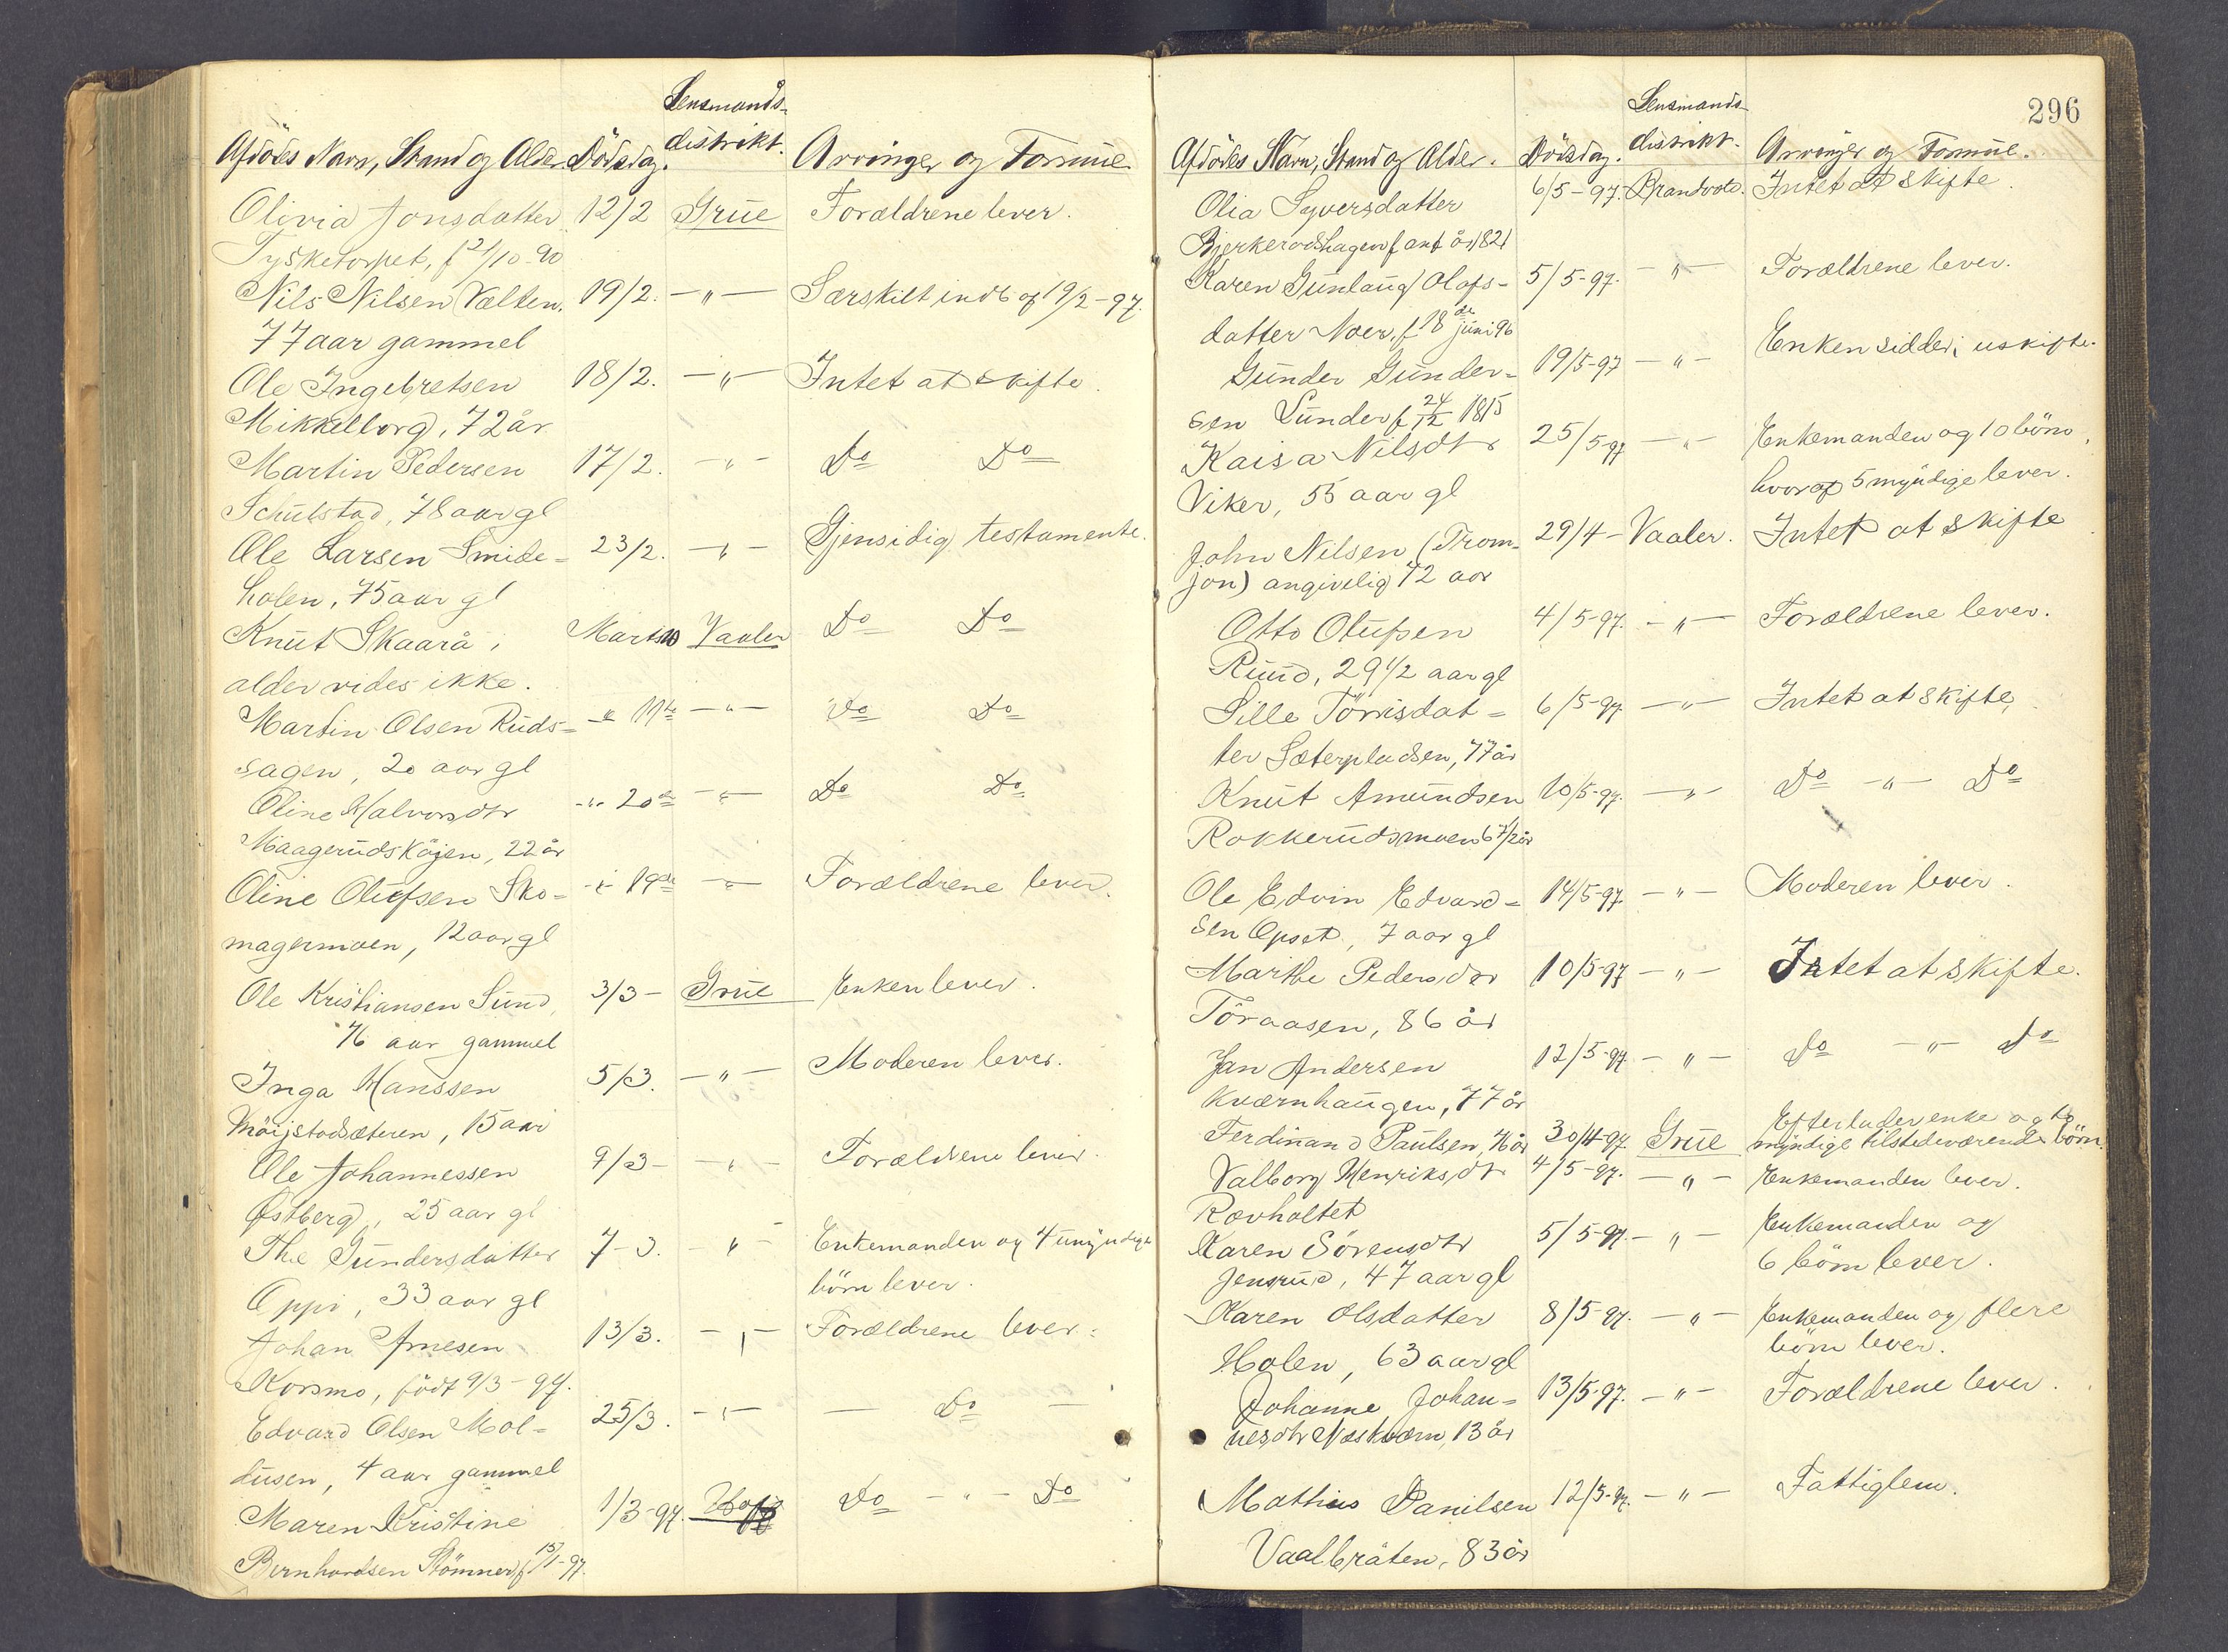 Lensmands-
Afdödes Navn, Stand og Alder. Dödsdag. distrikt. Arvinger og Formue
Olivia Jonsdatter 12/2 Grue Forældrene lever.
Tysketorpet, f 21/10-90
Nils Nilsen Vælten. 19/2. -"- Særskilt indb af 19/2-97.
77 aar gammel
Ole Ingebretsen 18/2. -"- Intet at skifte.
Mikkelborg, 72 år
Martin Pedersen 17/2. -"- Do Do
Schulstad, 78 aar gl
Ole Larsen Smide= 23/2. -"- Gjensidig testamente.
holen, 75 aar gl
Knut Skaarå, Marts 10 Vaaler Do Do
alder vides ikke.
Martin Olsen Ruds= -"- 11te -"- Do Do
sagen, 20 aar gl
Oline Halvorsdtr -"- 20de -"- Do Do
Maagerudsköjen, 22 år
Oline Olufsen Sko= -"- 19de -"- Forældrene lever.
magermoen, 12 aar gl
Ole Kristiansen Sund, 3/3- Grue Enken lever.
76 aar gammel
Inga Hanssen 5/3. -"- Moderen lever.
Möijstadsæteren, 15 aar
Ole Johannessen 9/3- -"- Forældrene lever.
Østberg, 25 aar gl
Thea Gundersdatter 7-3. -"- Enkemanden og 4 umyndige
Oppi, 33 aar gl börn lever.
Johan Arnesen 13/3. -"- Forældrene lever.
Korsmo, födt 9/3-97.
Edvard Olsen Mol= 25/3. -"- - Do -
dusen, 4 aar gammel
Maren Kristine 1/3-97. Hof Do -"- Do
Bernhardsen Stömner, f 15/1-97.
296
Lensmands-
Afdödes Navn, Stand og Alder. Dödsdag. distrikt. Arvinger og Formue.
Olia Syversdatter 6/5-97. Brandvold. Intet at skifte.
Bjerkerodshagen f ant år 1821
Karen Gunlaug Olafs- 5/5-97. -"- Forældrene lever.
datter Noer, f 18de juni 96
Gunder Gunder= 19/5-97 -"- Enken sidder i uskifte.
sen Lunder f 24/12 1815
Kaisa Nilsdtr 25/5-97 -"- Enkemanden og 10 börn,
Viker, 55 aar gl hvoraf 5 myndige lever.
John Nilsen (Trom- 29/4- Vaaler. Intet at skifte
jon) angivelig 72 aar
Otto Olufsen 4/5-97. -"- Forældrene lever.
Ruud, 29 1/2 aar gl
Sille Törrisdat= 6/5-97. -"- Intet at skifte,
ter Sæterpladsen, 77 år
Knut Amundsen 10/5-97. -"- Do -"- Do
Rokkerudsmoen 67 1/2 år
Ole Edvin Edvard= 14/5-97. -"- Moderen lever.
sen Opset, 7 aar gl
Marthe Pedersdtr 10/5-97 -"- Intet at skifte.
Töraasen, 86 år
Jan Andersen 12/5-97. -"- Do -"- Do
Kværnhaugen, 77 år
Ferdinand Paulsen, 76 år 30/4-97. Grue Efterlader enke og to
myndige tilstedeværende börn.
Valborg Henriksdtr 4/5-97. -"- Enkemanden lever.
Rævholtet
Karen Sörensdtr 5/5-97. -"- Enkemanden og
Jensrud, 47 aar gl 6 börn lever.
Karen Olsdatter 8/5-97. -"- Enkemanden og flere
Holen, 63 aar gl börn lever.
Johanne Johan= 13/5-97. -"- Forældrene lever.
nesdtr Næskværn, 13 år
Mathias Danilsen 12/5-97. -"- Fattiglem.
Vaalbråten, 83 år